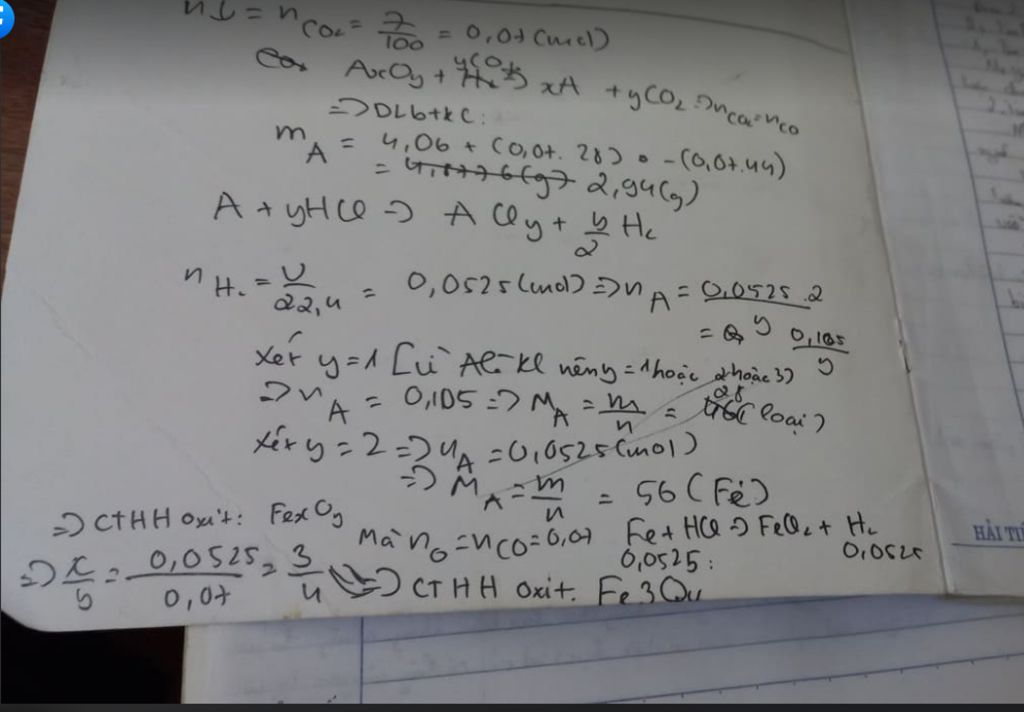 n↓ = nCO₂ = 7/100 = 0,07 (mol)
AxOy + yCO → xA + yCO₂ => nCO₂ = nCO
=> DLbtKL:
mA = 4,06 + (0,07. 28) - (0,07.44)
= 2,94 (g)
A + yHCl => ACly + y/2 H₂
nH₂ = V/22,4 = 0,0525 (mol) => nA = 0,0525.2/y
= 0,105/y
Xét y=1 [Vì A là KL nên y = 1 hoặc 2 hoặc 3)
=> nA = 0,105 => MA = m/n = 28 (loại)
Xét y = 2 => nA = 0,0525 (mol)
=> MA = m/n = 56 (Fe)
=> CTHH oxit: FexOy
Mà nO = nCO = 0,07
Fe + HCl => FeCl₂ + H₂
0,0525 : 0,0525
=> x/y = 0,0525/0,07 = 3/4 => CTHH oxit: Fe3O4
HẢI TI